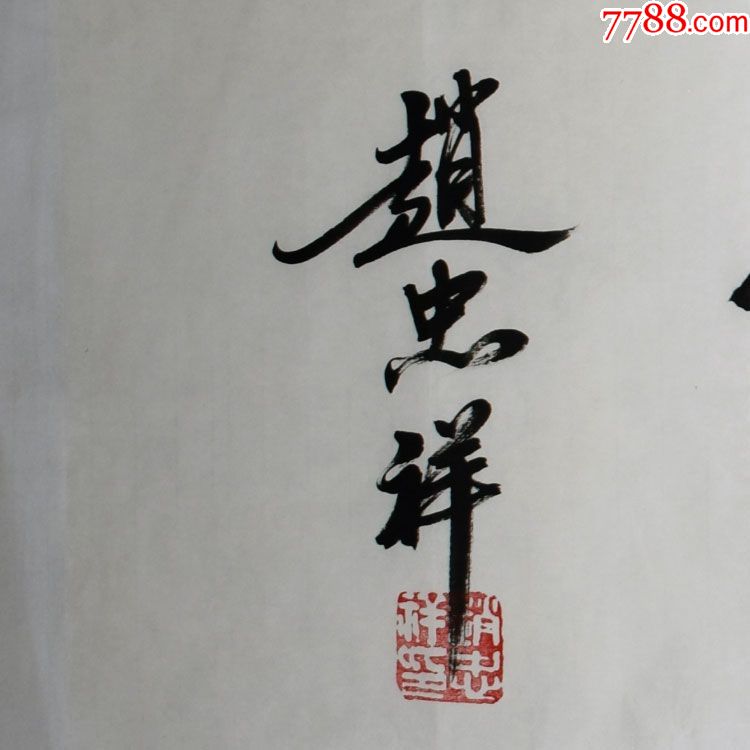 7788.com
趙忠祥
趙忠
祥印